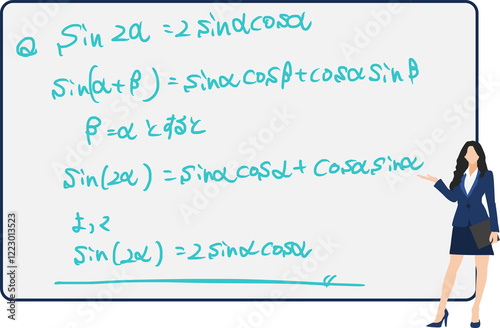 Q sin2α=2sinαcosα
sin(α+β)=sinαcosβ+cosαsinβ
β=αとすると
sin(2α)=sinαcosα+cosαsinα
よって
sin(2α)=2sinαcosα
Adobe Stock | #1223013523